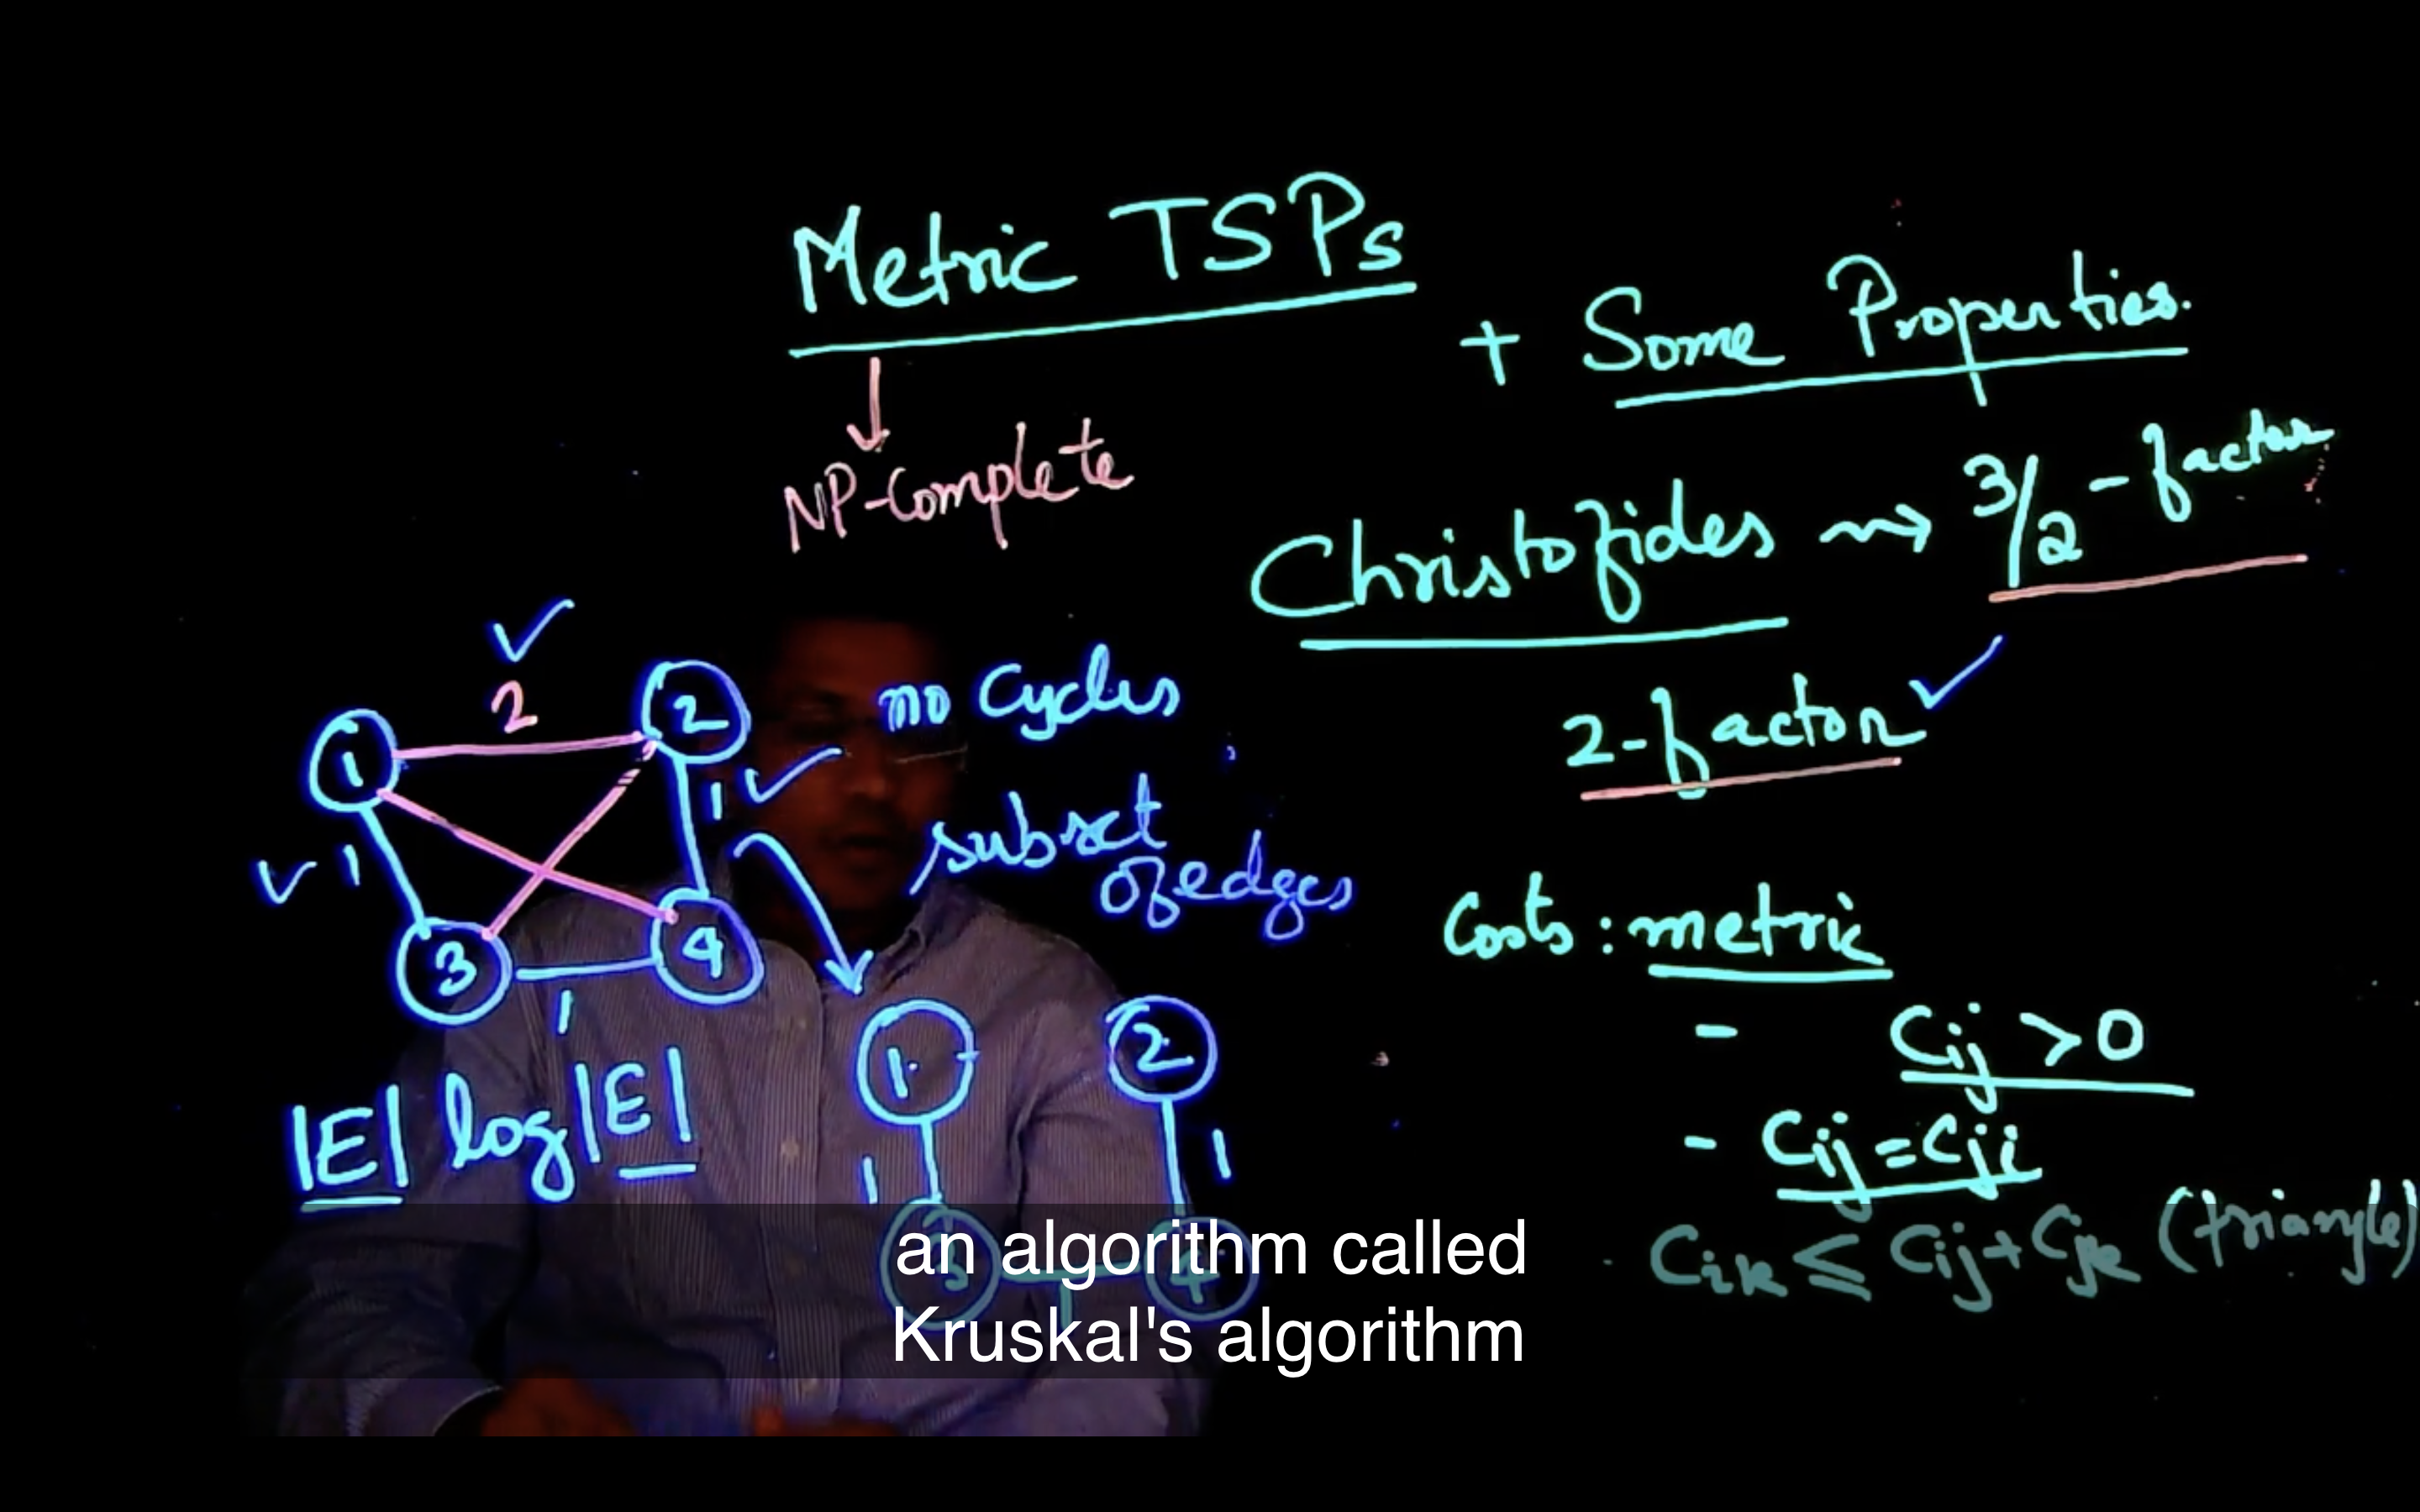 Metric TSPs
+ Some Properties.
NP-Complete
Christofides ⇝ 3/2 - factor
2-factor ✓
✓
2
1
2
no cycles
1 ✓
subset
of edges
✓ 1
3
4
1
|E| log |E|
1
2
1
1
3
4
1
Costs : metric
- Cij > 0
- Cij = Cji
- Cik ≤ Cij + Cjk (triangle)
an algorithm called
Kruskal's algorithm